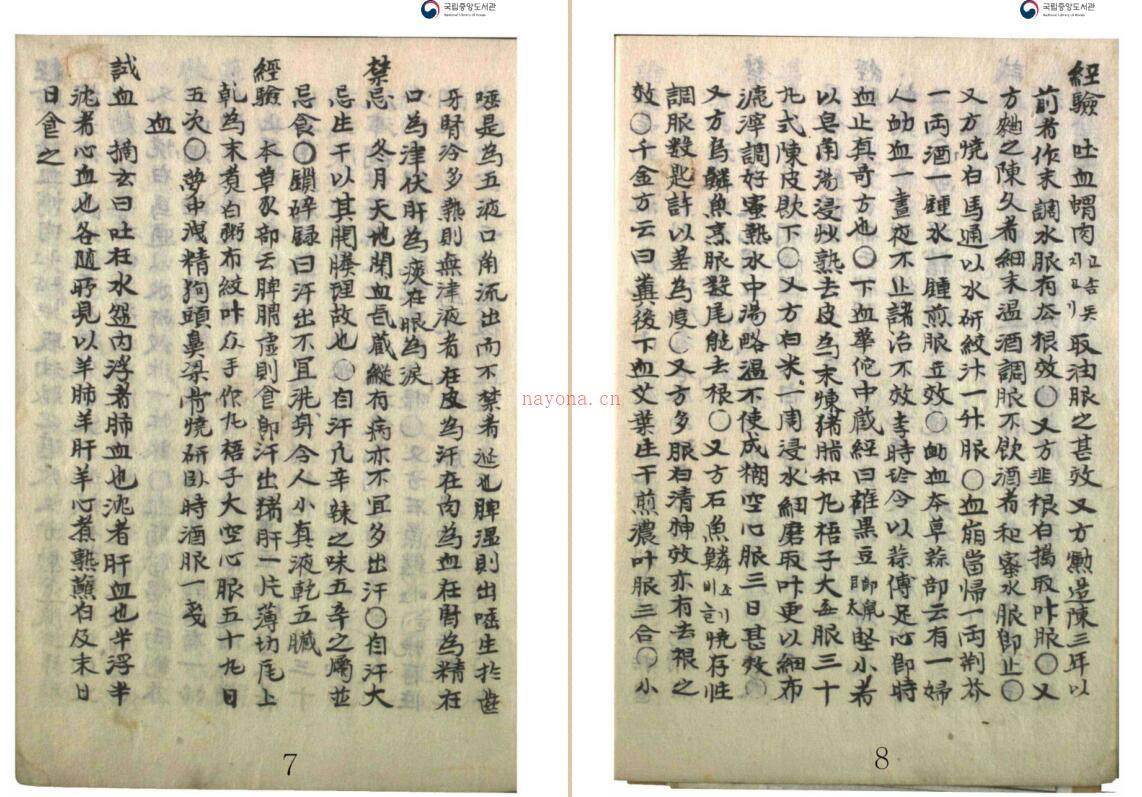 국립중앙도서관
National Library of Korea
唾是為五液口角流出而不禁者涎也脾溫則出唾生於齒
牙腎冷多熱則無津液者在皮為汗在肉為血在腎為精在
口為津伏肝為痰在眼為淚
禁忌冬月天地閉血氣藏縱有病亦不宜多出汗○自汗大
忌生干以其開腠理故也○自汗凢辛辣之味五辛之屬並
忌食○鎖碎錄曰汗出不宜洗身令人小真液乾五臟
經驗本草豕部云脾胃虛則食卽汗出猪肝一片薄切瓦上
乾為末煑白粥布絞叶众手作丸梧子大空心服五十丸日
五次○夢中洩精狗頭鼻梁骨燒研卧時酒服一戔
血
試血摘玄曰吐在水盌內浮者肺血也沈者肝血也半浮半
沈者心血也各隨所見以羊肺羊肝羊心煮熟蘸白及末日
日食之
7
국립중앙도서관
National Library of Korea
經驗 吐血蝟肉炙取油服之甚效又方造陳三年以
前者作末調水服有夲根效○○又方韭根白搗取叶服○○又
方麯之陳久者細末温酒調服不飮酒者和蜜水服卽止○
又方燒白馬通以水研絞汁一升服○血崩當帰一両荆芥
一両酒一鍾水一鍾煎服立效○衂血夲草蒜部云有一婦
人衂血一晝夜不止諸治不效李時珍令以蒜傅足心卽時
血止真奇方也○下血華佗中藏經曰雄黒豆卽鼠太堅小者
以皂角湯浸炒熟去皮為末煉猪脂和丸梧子大每服三十
丸式陳皮飮下○又方白米一周浸水細磨取叶更以細布
漉滓調好蜜熱水中湯略溫不使成糊空心服三日甚效○
又方烏鱗魚烹服數尾能去根○又方石魚鱗燒存性
調服數匙許以差為度○又方多服白清神效亦有去根之
效○千金方云曰糞後下血艾葉生干煎濃叶服三合○小
8
nayona.cn